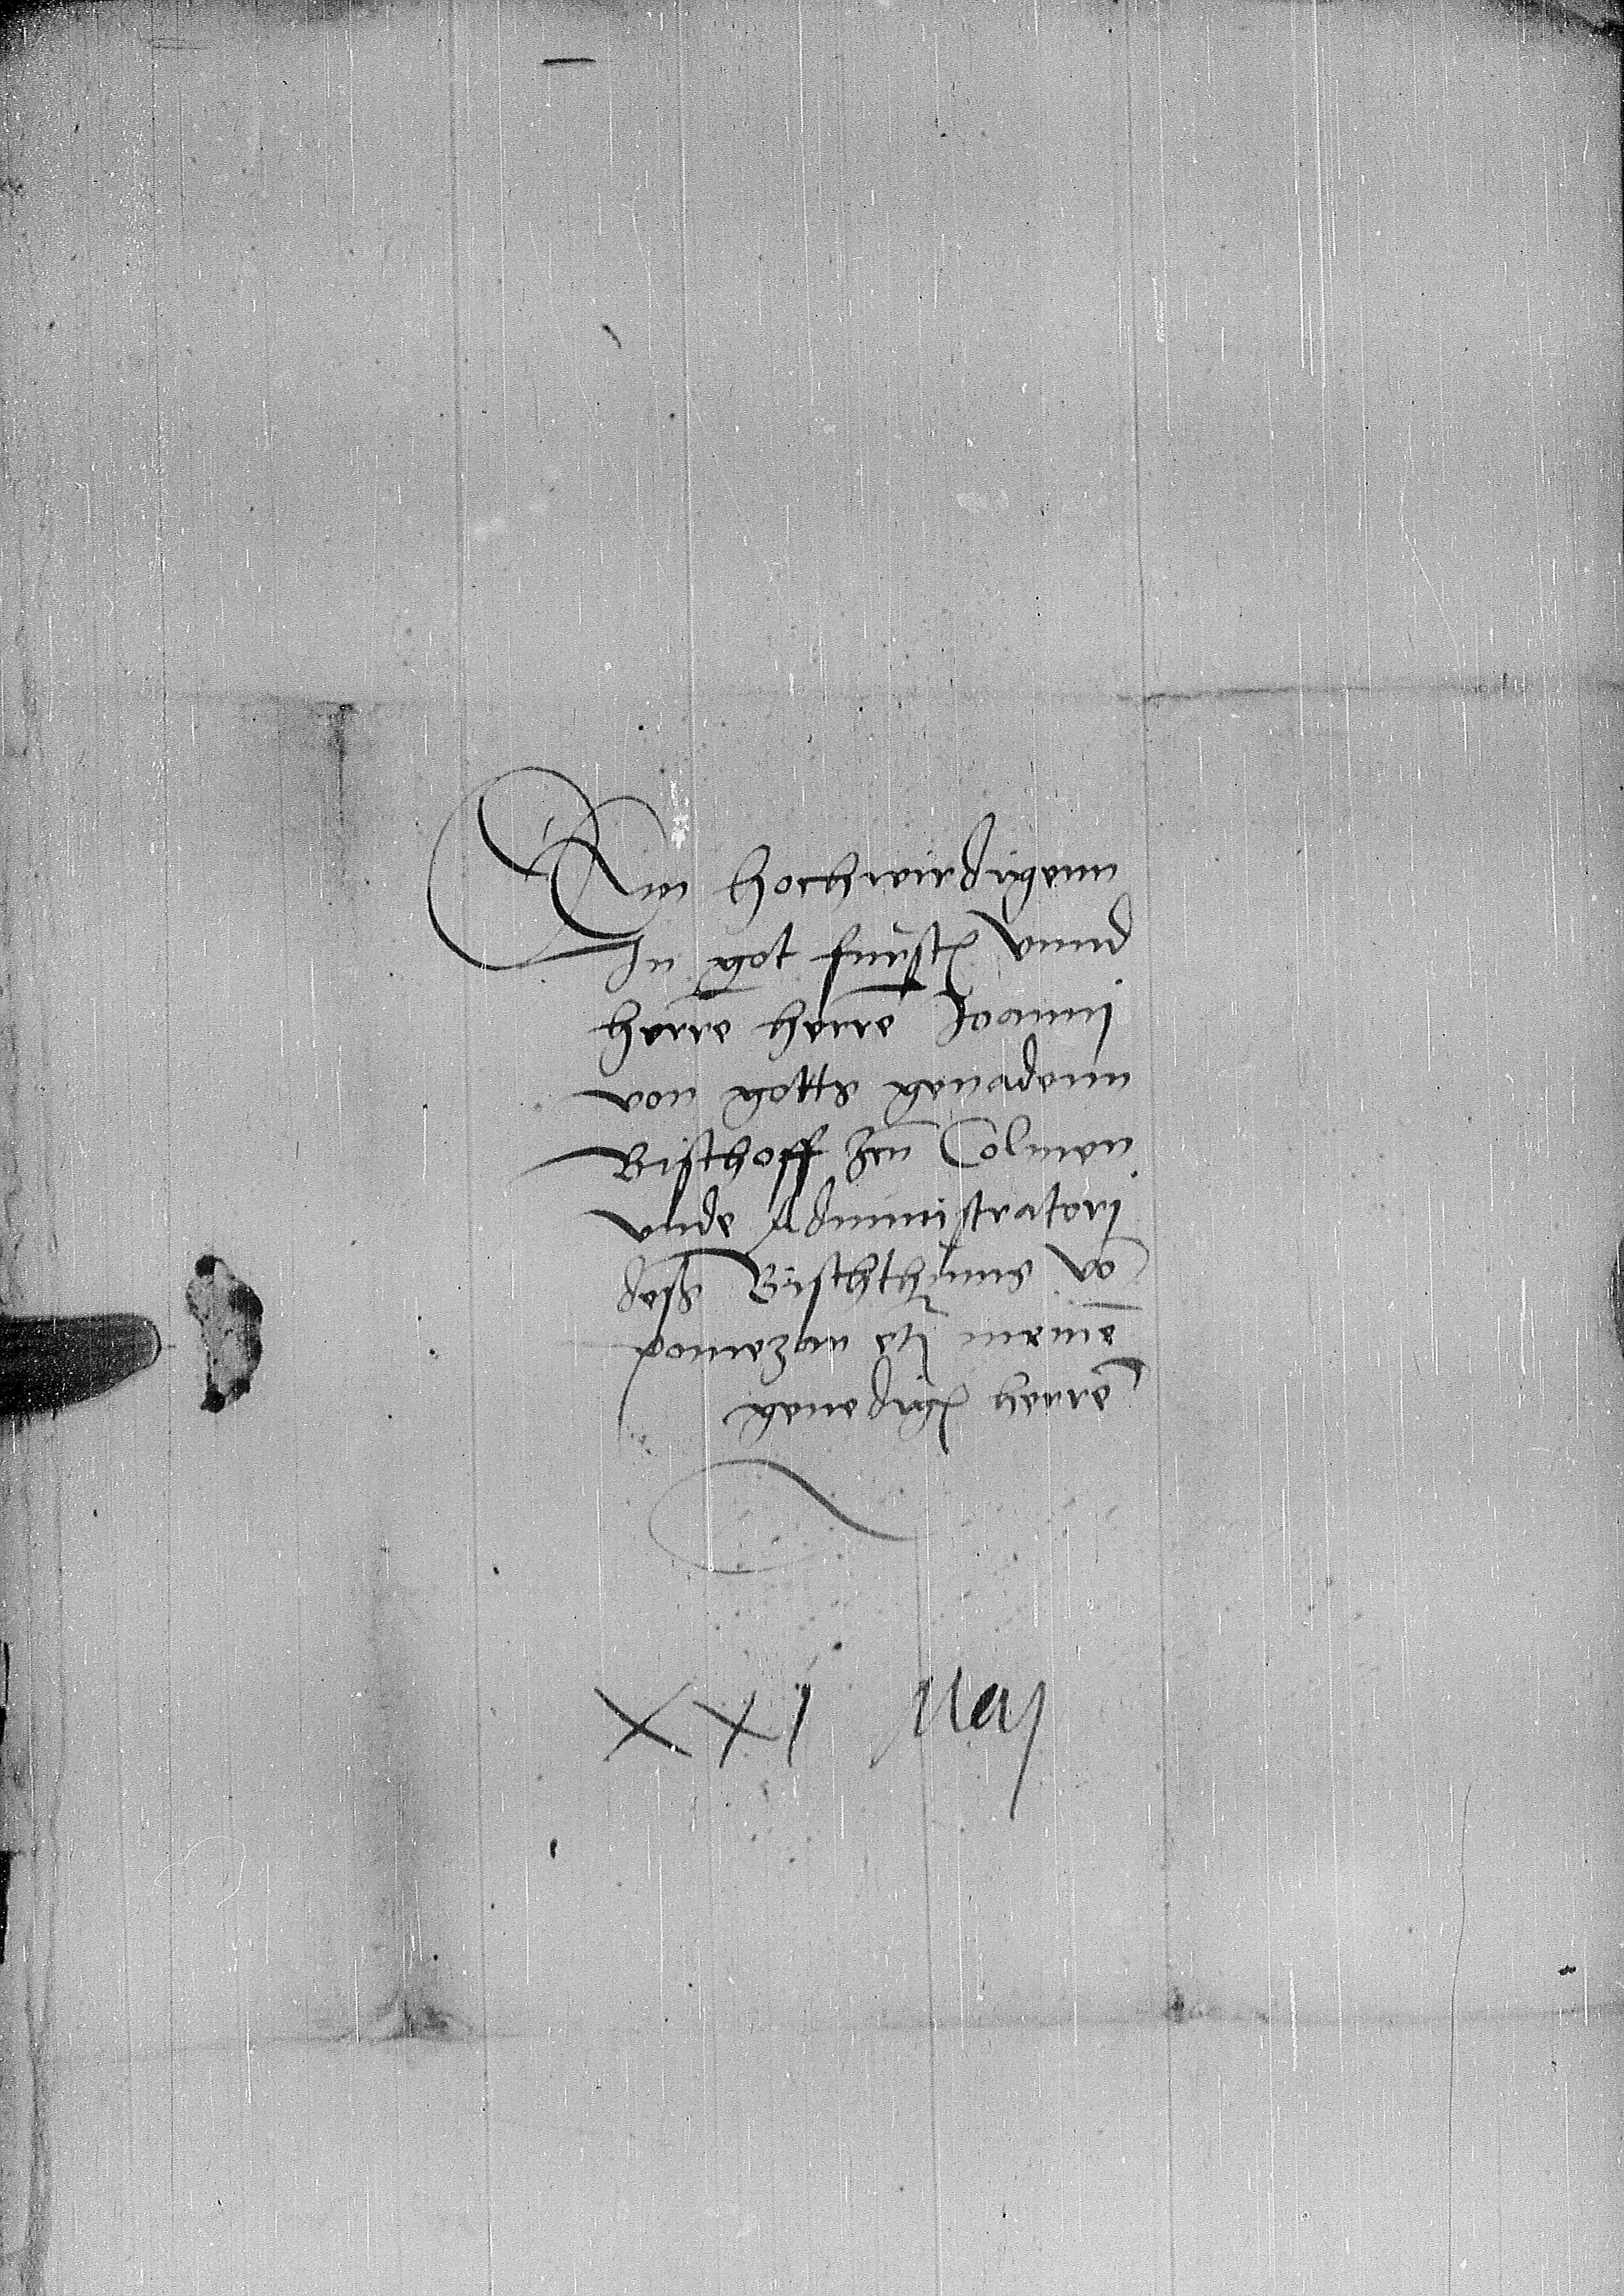 Dem hochwirdigenn
In got furste vnnd
herre herre Joannj
von gotts genadenn
Bischoff zcu Colmen
vnde Administratorj
deß Bischthums vo
pomezan meinem
genedigen herre
XXI May